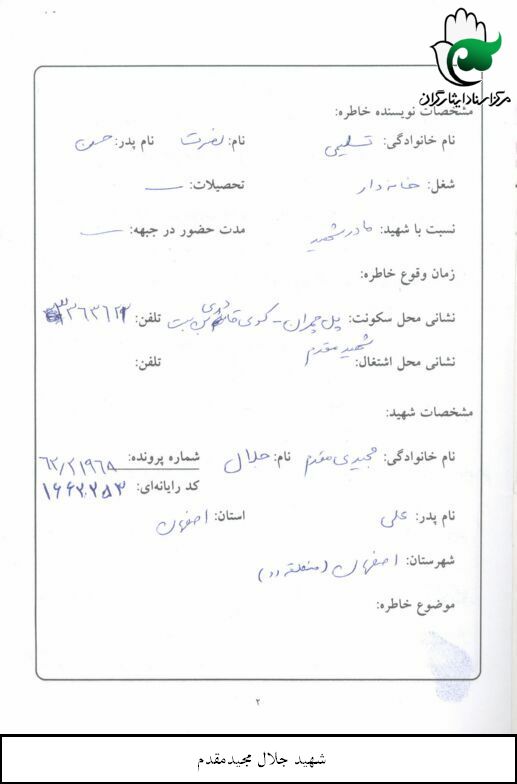 مرکز اسناد ایثارگران
مشخصات نویسنده خاطره:
نام خانوادگی: تسلیمی نام: نصرت نام پدر: حسن
شغل: خانه دار تحصیلات: ــ
نسبت با شهید: مادر شهید مدت حضور در جبهه: ــ
زمان وقوع خاطره:
نشانی محل سکونت: پل چمران - کوی بن بست تلفن:
شهید مقدم
نشانی محل اشتغال: تلفن:
مشخصات شهید:
نام خانوادگی: مجیدی مقدم نام: جلال شماره پرونده: ۶۲/۲۱۹۶۸
کد رایانه‌ای: ۱۶۶۲۲۵۳
نام پدر: علی استان: اصفهان
شهرستان: اصفهان (منطقه دو)
موضوع خاطره:
۲
شهید جلال مجیدمقدم